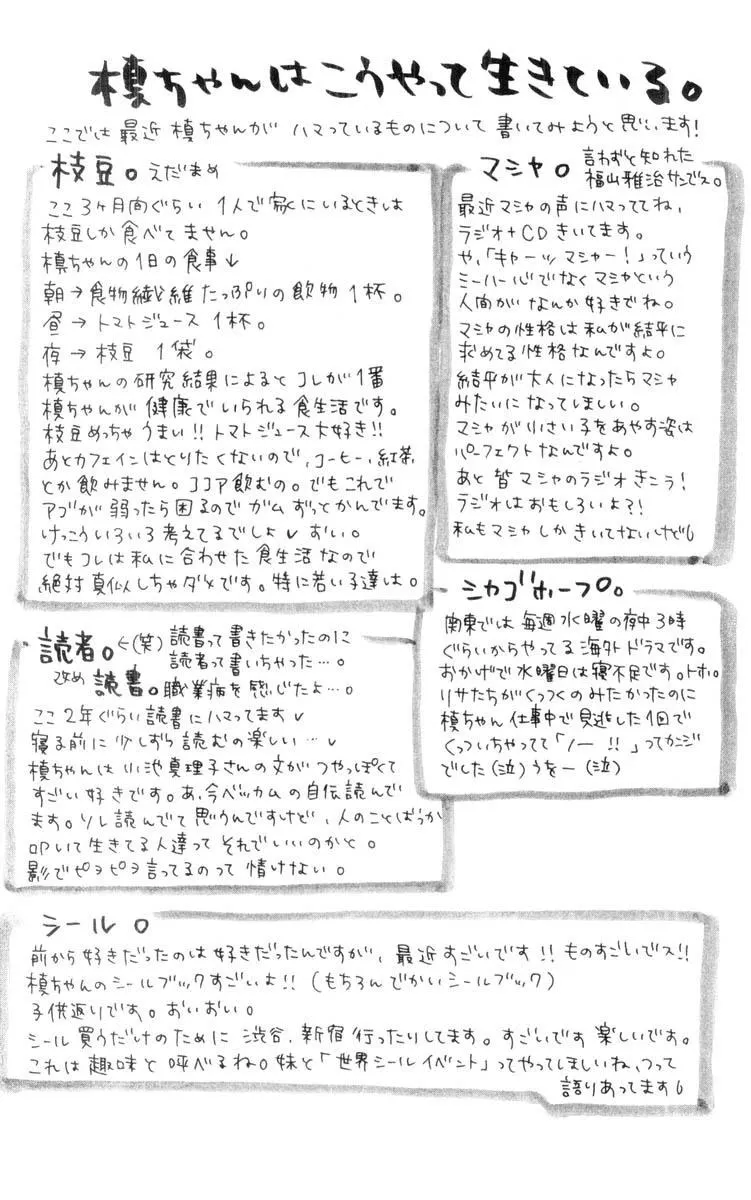 槙ちゃんはこうやって生きている。
ここでは最近槙ちゃんがハマっているものについて書いてみようと思います!
枝豆。えだまめ
ここ3ヶ月間ぐらい1人で家にいるときは
枝豆しか食べてません。
槙ちゃんの1日の食事↓
朝→食物繊維たっぷりの飲物1杯。
昼→トマトジュース1杯。
夜→枝豆1袋。
槙ちゃんの研究結果によるとコレが1番
槙ちゃんが健康でいられる食生活です。
枝豆めっちゃうまい!!トマトジュース大好き!!
あとカフェインはとりたくないので、コーヒー、紅茶
とか飲みません。ココア飲むの。でもこれで
アゴが弱ったら困るのでガムずっとかんでます。
けっこういろいろ考えてるでしょ おい。
でもコレは私に合わせた食生活なので
絶対真似しちゃダメです。特に若い子達は。
マシャ。言わずと知れた
福山雅治サンでス。
最近マシャの声にハマっててね、
ラジオ+CDきいてます。
や、「キャーッマシャー!」っていう
ミーハー心でなくマシャという
人間がなんか好きでね。
マシャの性格は私が結平に
求めてる性格なんですよ。
結平が大人になったらマシャ
みたいになってほしい。
マシャが小さい子をあやす姿は
パーフェクトなんですよ。
あと皆マシャのラジオきこう!
ラジオはおもしろいよ?!
私もマシャしかきいてないけど
シカゴホープ。
関東では毎週水曜の夜中3時
ぐらいからやってる海外ドラマです。
おかげで水曜日は寝不足です。トホ。
リサたちがくっつくのみたかったのに
槙ちゃん仕事中で見逃した1回で
くっついちゃってて「ノー!!」ってカンジ
でした(泣)うをー(泣)
読者。←(笑)読書って書きたかったのに
読者って書いちゃった…。
改め読書。職業病を感じたよ…。
ここ2年ぐらい読書にハマってます
寝る前に少しずつ読むの楽しい…
槙ちゃんは小池真理子さんの文がつやっぽくて
すごい好きです。あ、今ベッカムの自伝読んで
ます。ソレ読んでて思うんですけど、人のことばっか
叩いて生きてる人達ってそれでいいのかと。
影でピヨピヨ言ってるのって情けない。
シール。
前から好きだったのは好きだったんですが、最近すごいです!!ものすごいでス!!
槙ちゃんのシールブックすごいよ!!(もちろんでかいシールブック)
子供返りです。おいおい。
シール買うだけのために渋谷、新宿行ったりしてます。すごいです楽しいです。
これは趣味と呼べるね。妹と「世界シールイベント」ってやってほしいね、つって
語りあってます